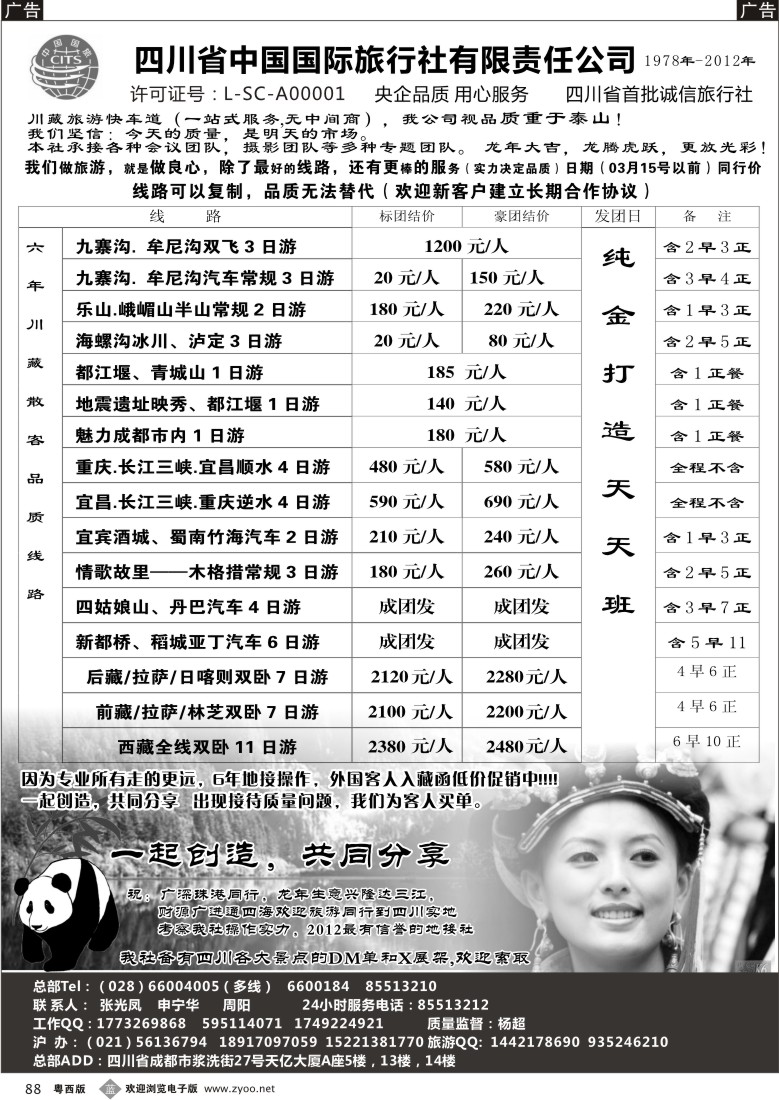 广告
广告
中国国旅
CITS
四川省中国国际旅行社有限责任公司 1978年-2012年
许可证号：L-SC-A00001 央企品质 用心服务 四川省首批诚信旅行社
川藏旅游快车道（一站式服务,无中间商），我公司视品质重于泰山！
我们坚信：今天的质量，是明天的市场。
本社承接各种会议团队，摄影团队等多种专题团队。 龙年大吉，龙腾虎跃，更放光彩！
我们做旅游，就是做良心，除了最好的线路，还有更棒的服务（实力决定品质）日期（03月15号以前）同行价
线路可以复制，品质无法替代（欢迎新客户建立长期合作协议）
线 路 标团结价 豪团结价 发团日 备 注
六年川藏散客品质线路
纯金打造天天班
九寨沟. 牟尼沟双飞 3 日游 1200 元/人 含 2 早 3 正
九寨沟. 牟尼沟汽车常规 3 日游 20 元/人 150 元/人 含 3 早 4 正
乐山.峨嵋山半山常规 2 日游 180 元/人 220 元/人 含 1 早 3 正
海螺沟冰川、泸定 3 日游 20 元/人 80 元/人 含 2 早 5 正
都江堰、青城山 1 日游 185 元/人 含 1 正餐
地震遗址映秀、都江堰 1 日游 140 元/人 含 1 正餐
魅力成都市内 1 日游 180 元/人 含 1 正餐
重庆.长江三峡.宜昌顺水 4 日游 480 元/人 580 元/人 全程不含
宜昌.长江三峡.重庆逆水 4 日游 590 元/人 690 元/人 全程不含
宜宾酒城、蜀南竹海汽车 2 日游 210 元/人 240 元/人 含 1 早 3 正
情歌故里——木格措常规 3 日游 180 元/人 260 元/人 含 2 早 5 正
四姑娘山、丹巴汽车 4 日游 成团发 成团发 含 3 早 7 正
新都桥、稻城亚丁汽车 6 日游 成团发 成团发 含 5 早 11
后藏/拉萨/日喀则双卧 7 日游 2120 元/人 2280 元/人 4 早 6 正
前藏/拉萨/林芝双卧 7 日游 2100 元/人 2200 元/人 4 早 6 正
西藏全线双卧 11 日游 2380 元/人 2480 元/人 6 早 10 正
因为专业所有走的更远，6年地接操作，外国客人入藏函低价促销中!!!!
一起创造，共同分享 出现接待质量问题，我们为客人买单。
一起创造，共同分享
祝：广深珠港同行，龙年生意兴隆达三江，
财源广进通四海欢迎旅游同行到四川实地
考察我社操作实力。2012最有信誉的地接社
我社备有四川各大景点的DM单和X展架,欢迎索取
总部Tel：（028）66004005（多线） 6600184 85513210
联 系 人： 张光凤 申宁华 周阳 24小时服务电话：85513212
工作QQ：1773269868 595114071 1749224921 质量监督：杨超
沪 办：（021）56136794 18917097059 15221381770 旅游QQ: 1442178690 935246210
总部ADD：四川省成都市浆洗街27号天亿大厦A座5楼，13楼，14楼
88 粤西版 蓝 欢迎浏览电子版 www.zyoo.net